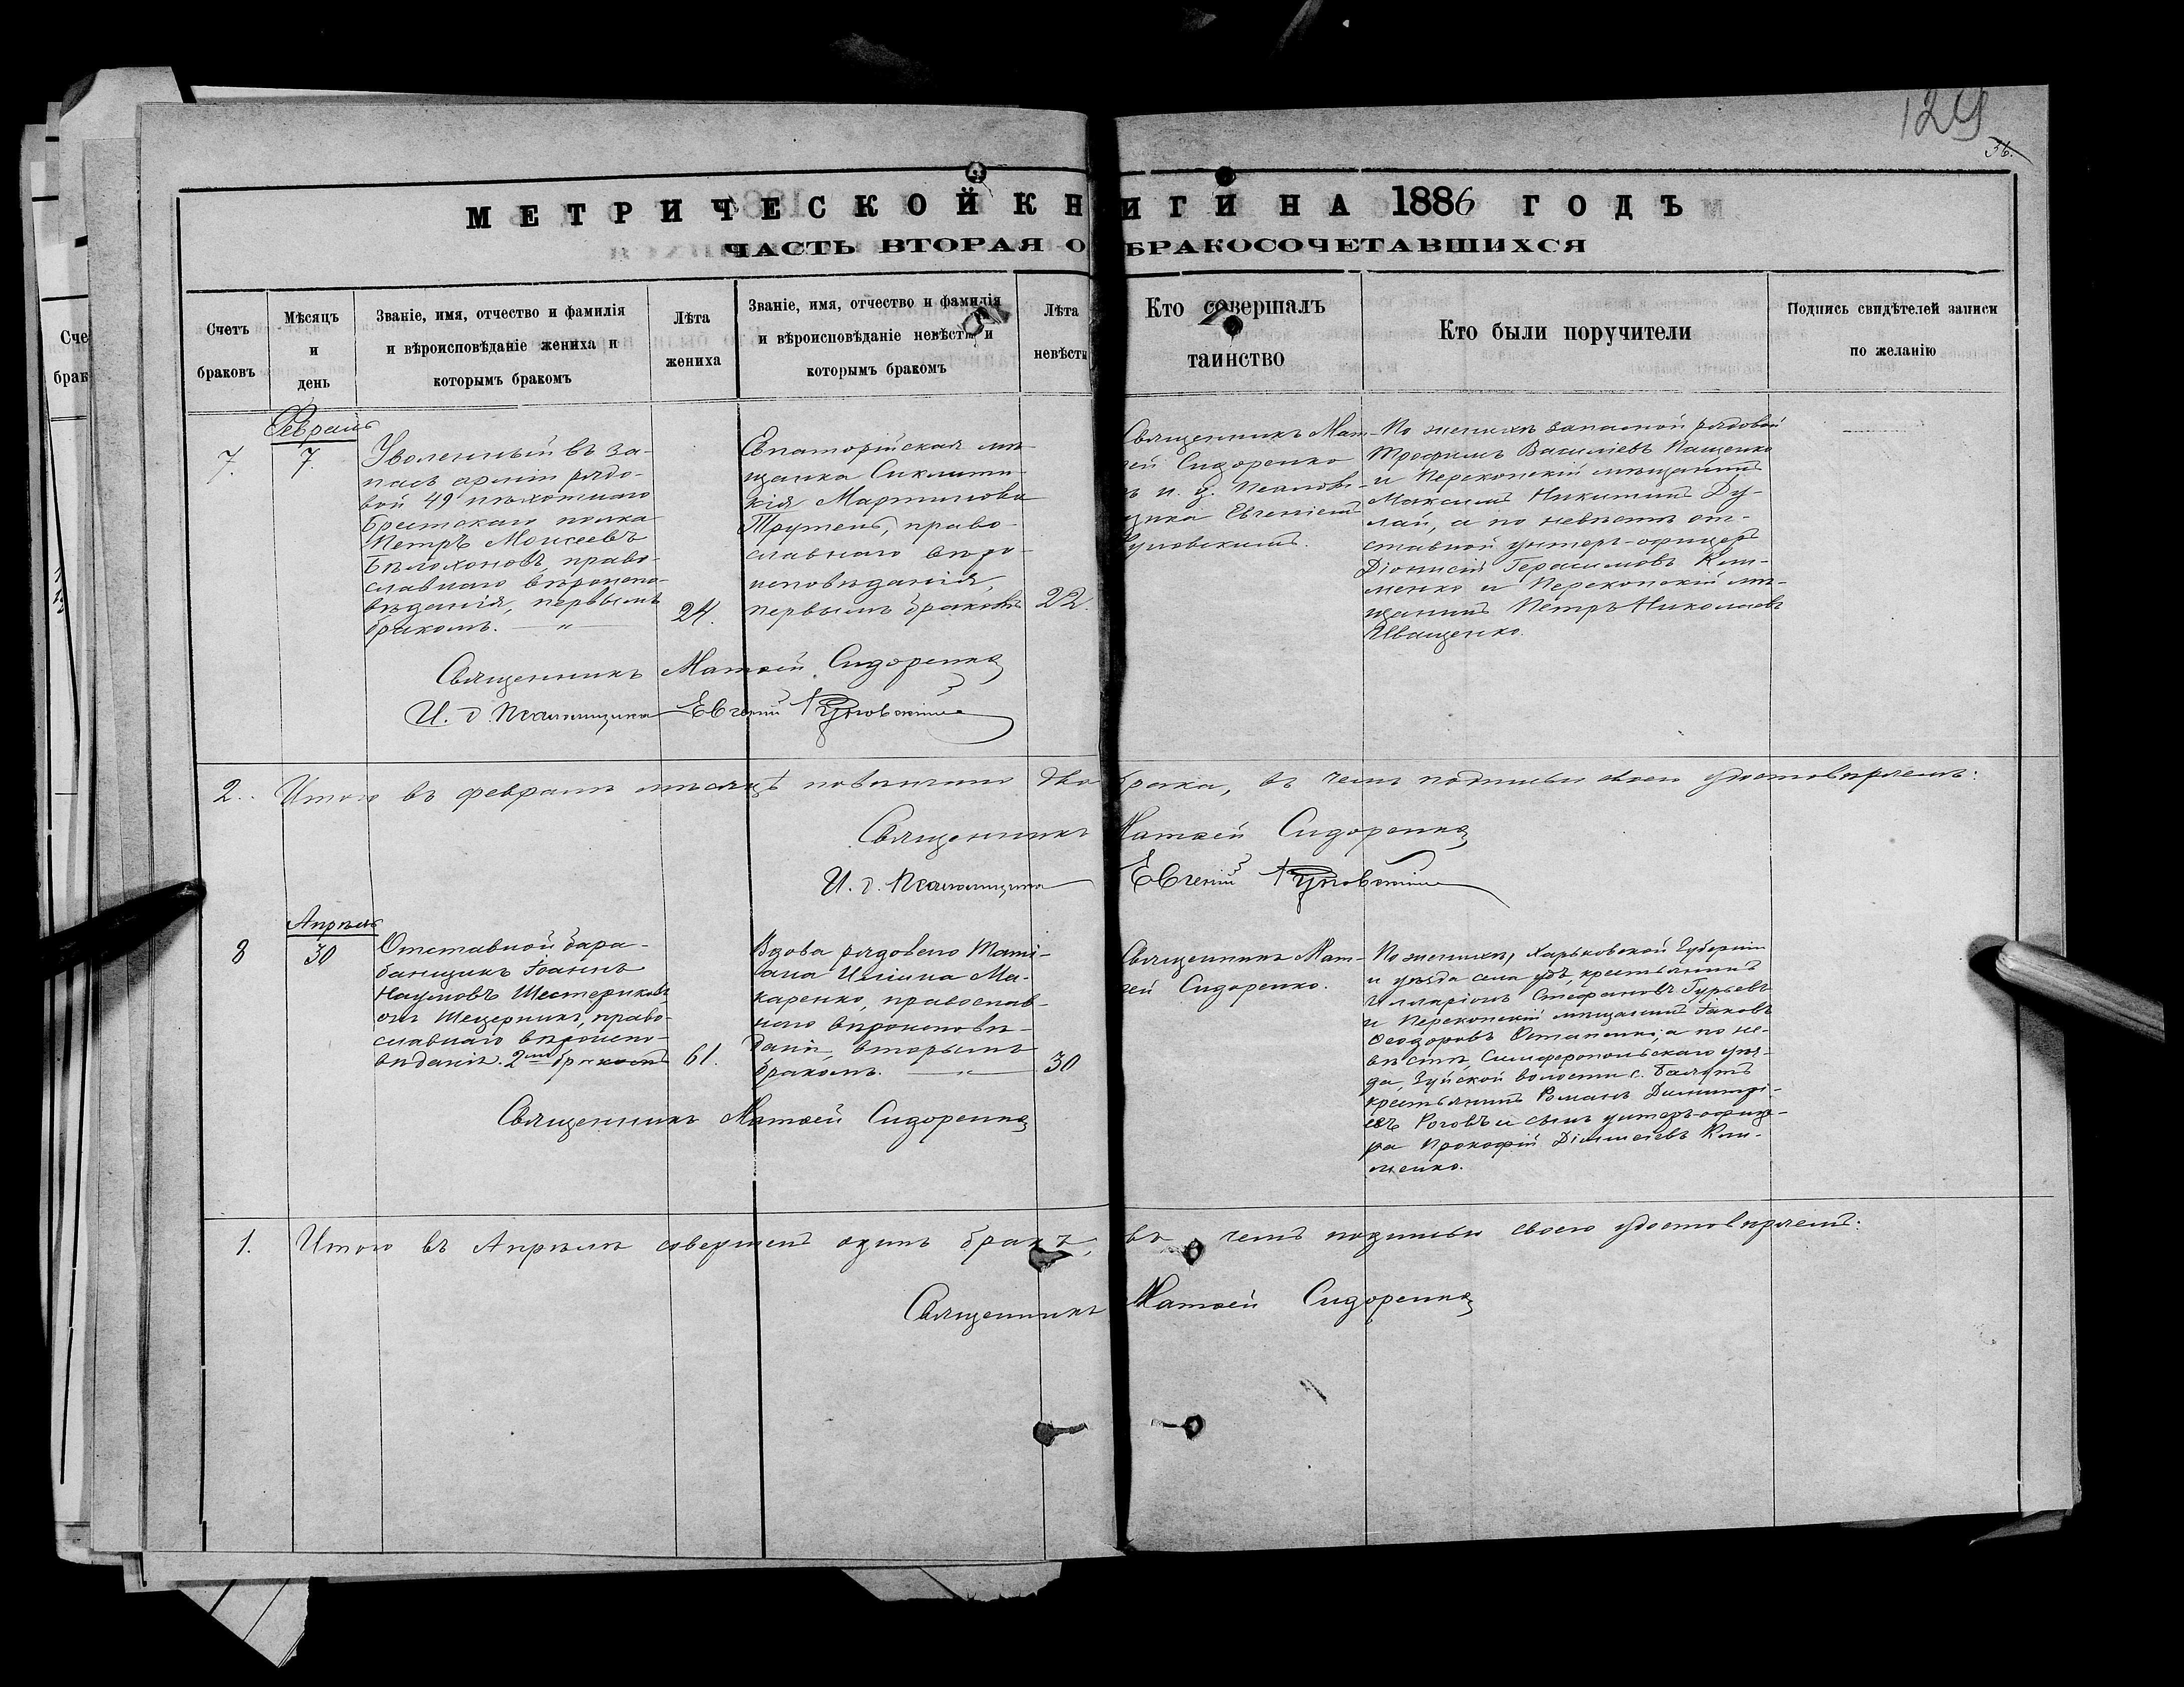 129
36.
МЕТРИЧЕСКОЙ КНИГИ НА 1886 ГОДЪ
ЧАСТЬ ВТОРАЯ О БРАКОСОЧЕТАВШИХСЯ
Счетъ
браковъ
Мѣсяцъ
и
день
Званіе, имя, отчество и фамилія
и вѣроисповѣданіе жениха и
которымъ бракомъ
Лѣта
жениха
Званіе, имя, отчество и фамилія
и вѣроисповѣданіе невѣсты и
которымъ бракомъ
Лѣта
невѣсты
Кто совершалъ
таинство
Кто были поручители
Подпись свидѣтелей записи
по желанію
Февраль
7.
7.
Уволенный въ за-
пасъ арміи рядо-
вой 49 пѣхотнаго
Брестскаго полка
Петръ Моисеевъ
Бѣлоконовъ, право-
славнаго вѣроиспо-
вѣданія, первымъ
бракомъ. — " —
24.
Евпаторійская мѣ-
щанка Синклити-
кія Мартинова
Трутень, право-
славнаго вѣро-
исповѣданія,
первымъ бракомъ
22.
Священникъ Мат-
ѳей Сидоренко
съ и. д. псалом-
щика Евгеніемъ
По женихѣ запасной рядовой
Трофимъ Василіевъ Пащенко
и Перекопскій мѣщанинъ
Максимъ Никитинъ Ду-
лай, а по невѣстѣ от-
ставной унтеръ-офицеръ
Діонисій Герасимовъ Кли-
менко и Перекопскій мѣ-
щанинъ Петръ Николаевъ
Иващенко.
Священникъ Матѳей Сидоренко
И. д. Псаломщика Евгеній
2. Итого въ февралѣ мѣсяцѣ повѣнчано два брака, въ чемъ подписью своею удостовѣряемъ:
Священникъ Матѳей Сидоренко
И. д. Псаломщика Евгеній
Апрѣль
8
30
Отставной бара-
банщикъ Іоаннъ
Наумовъ Шестериковъ
онъ Шецерникъ, право-
славнаго вѣроиспо-
вѣданія. 2мъ бракомъ
61.
Вдова рядового Таті-
ана Иліина Ма-
каренко, православ-
наго вѣроисповѣ-
данія, вторымъ
бракомъ. — " —
30
Священникъ Мат-
ѳей Сидоренко.
По женихѣ, Харьковской Губерніи
и уѣзда села Удъ, крестьянинъ
Илларіонъ Стефановъ Гурьевъ
и Перекопскій мѣщанинъ Іаковъ
Ѳеодоровъ Остапенко; а по не-
вѣстѣ, Симферопольскаго уѣз-
да, Зуйской волости с.
крестьянинъ Романъ Димитрі-
евъ Роговъ и сынъ унтеръ-офице-
ра Прокофій Діонисіевъ Кли-
менко.
Священникъ Матѳей Сидоренко
1. Итого въ Апрѣлѣ совершенъ одинъ бракъ, въ чемъ подписью своею удостовѣряемъ:
Священникъ Матѳей Сидоренко